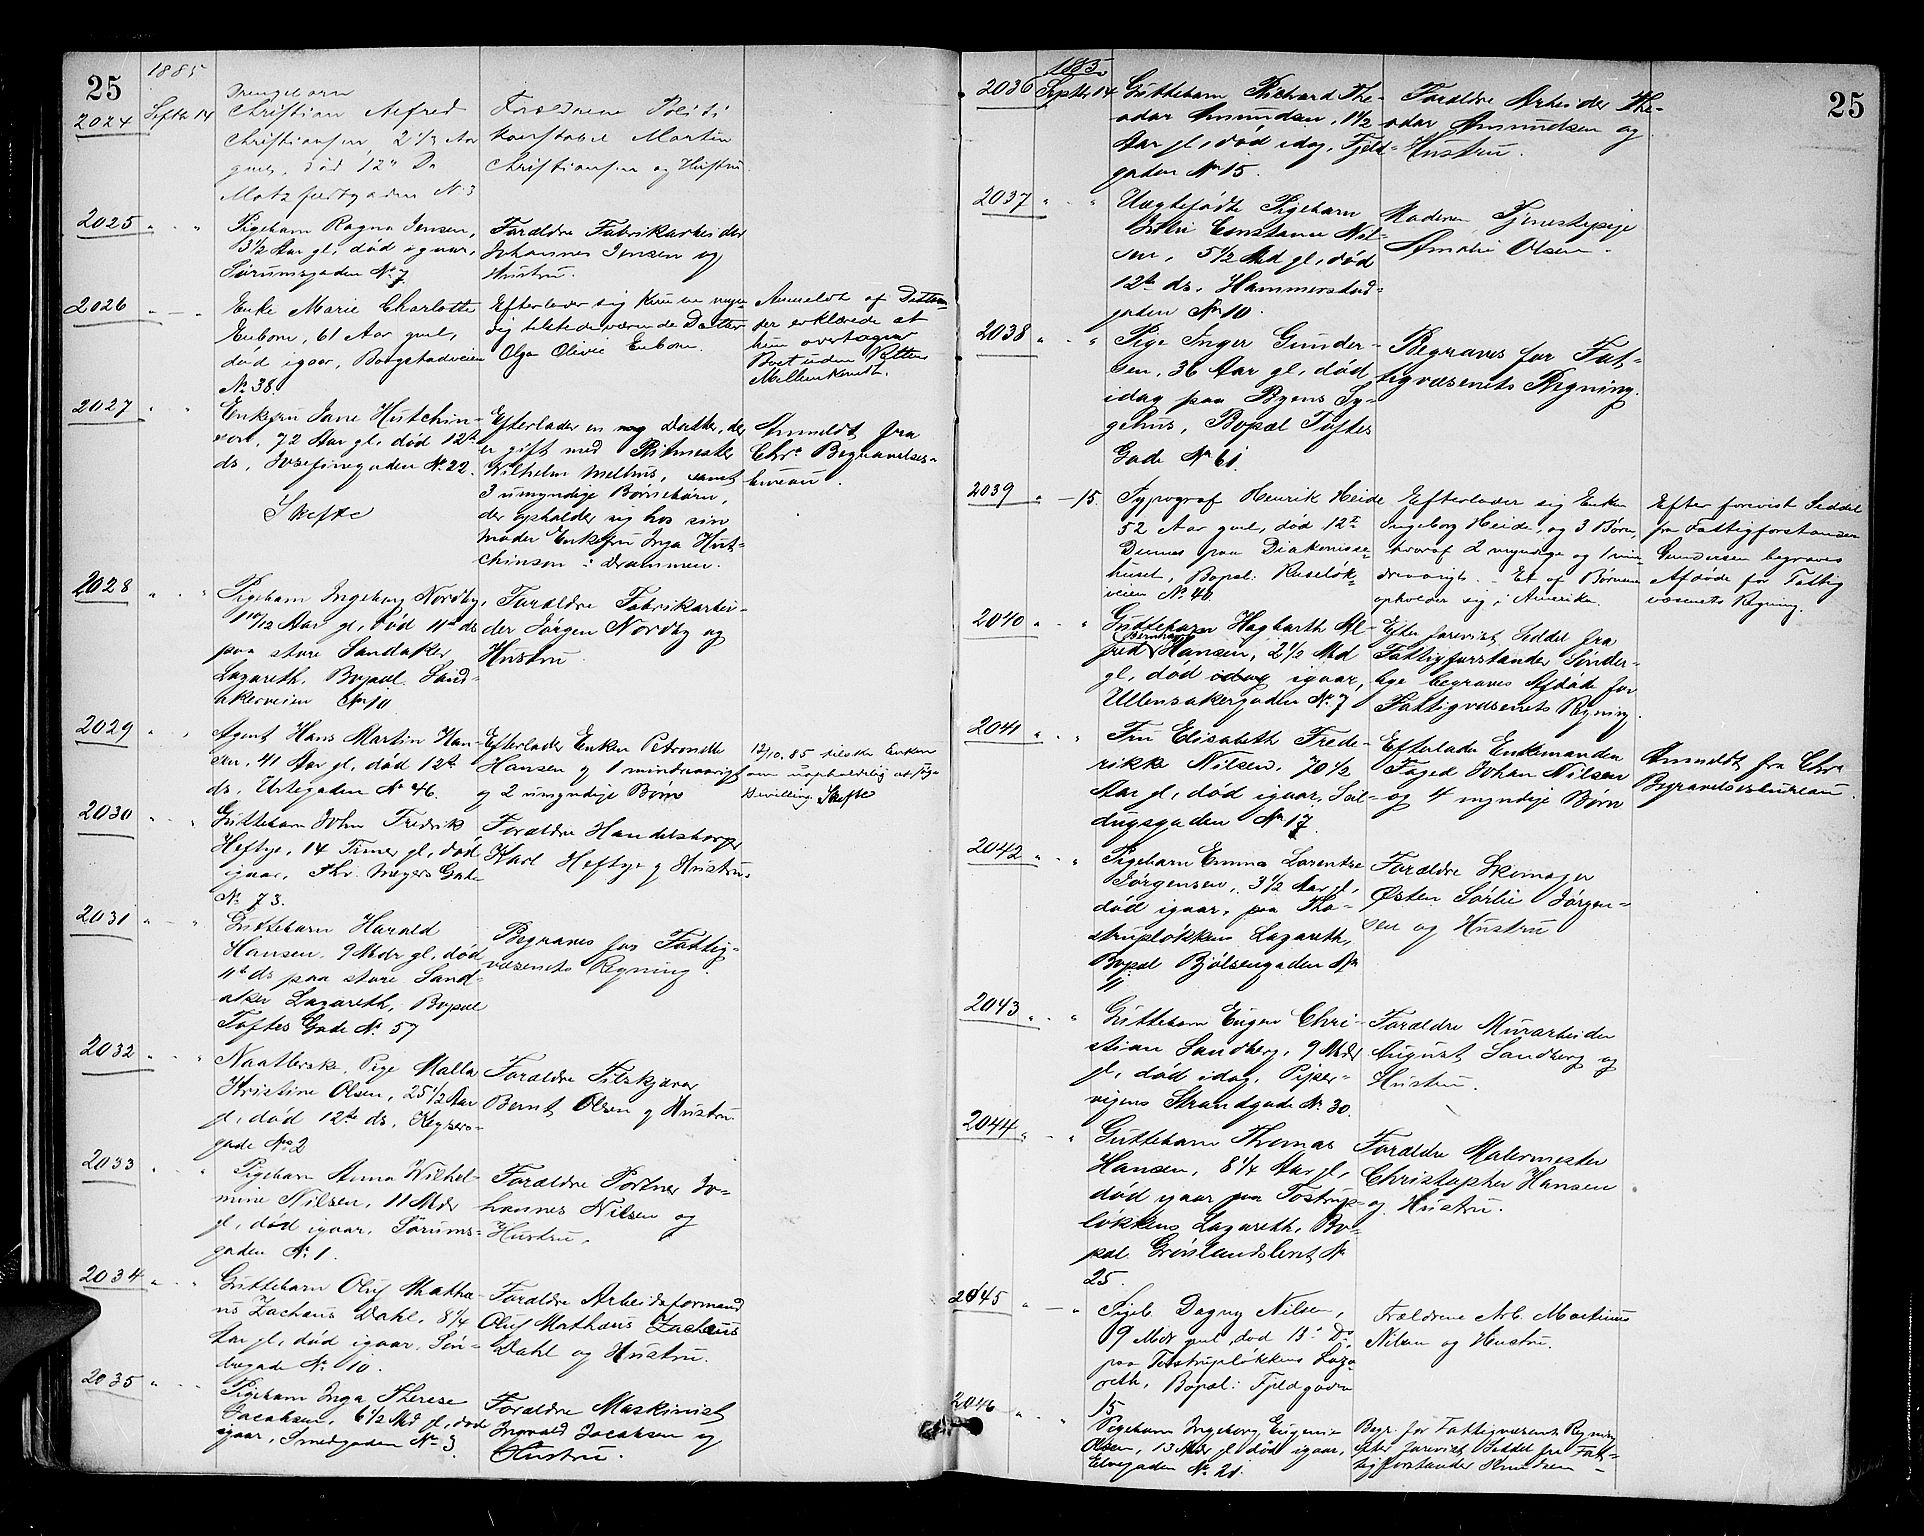 25
1885
2024 Septbr 14
Drengebarn
Christian Alfred
Christiansen, 2 1/2 Aar
gml, død 12te Ds
Motzfeldtgaden No 3
Forældrene Politi
konstabel Martin
Christiansen og Hustru
2025 " - "
Pigebarn Ragna Jensen,
3 1/2 Aar gl, død igaar,
Sørumsgaden No 7
Forældre Fabrikarbeider
Johannes Jensen og
Hustru.
2026 " - "
Enke Marie Charlotte
Enbom, 61 Aar gml,
død igaar, Bogstadveien
No 38.
Efterlader sig kun en myn-
dig tilstedeværende Datter
Olga Olivie Enbom.
Anmeldt af Datteren
der erklærede at
hun overtager
Boet uden Rettens
Mellemkomst.
2027 " "
Enkefru Jane Hutchin-
son, 72 Aar gl, død 12te
ds, Josefinegaden No 22.
Skifte
Efterlader en Datter, der
er gift med Ritmester
Wilhelm Melhus, samt
3 umyndige Børnebørn,
der opholder sig hos sin
Moder Enkefru Inga Hut-
chinson i Drammen.
Anmeldt fra
Chra Begravelses-
bureau.
2028 " "
Pigebarn Ingeborg Nordby,
1 10/12 Aar gl, død 11te ds
paa store Sandaker
Lazareth, Bopæl Sand-
akerveien No 10
Forældre Fabrikarbei-
der Jørgen Nordby og
Hustru.
2029 " "
Agent Hans Martin Han-
sen, 41 Aar gl, død 12te
ds, Urtegaden No 46.
Efterlader Enken Petronelle
Hansen og 1 mindreaarigt
og 2 umyndige Børn
12/10 85 tilsteds Enken
om uopholdelig at søge
Bevilling. Skifte
2030 " "
Guttebarn John Fredrik
Heftye, 14 Timer gl, død
igaar, Thv. Meyers Gade
No 73.
Forældre Handelsborger
Karl Heftye og Hustru
2031 " - "
Guttebarn Harald
Hansen, 9 Mdr gl, død
11te ds paa store Sand-
aker Lazareth, Bopæl
Toftes Gade No 57
Begraves for Fattig-
væsenets Regning.
2032 " - "
Naatlersk. Pige Malla
Kristine Olsen, 25 1/2 Aar
gl, død 12te ds, Keysers-
gade No 2
Forældre Flisskjærer
Bernt Olsen og Hustru
2033 " "
Pigebarn Anna Wilhel-
mine Nilsen, 11 Mdr
gl, død igaar, Sørums-
gaden No 1.
Forældre Portner Jo-
hannes Nilsen og
Hustru.
2034 " "
Guttebarn Oluf Mathæ-
us Zachæus Dahl, 8 1/4
Aar gl, død igaar, Søn-
begade No 10.
Forældre Arbeidsformand
Oluf Mathæus Zachæus
Dahl og Hustru.
2035 " - "
Pigebarn Inga Therese
Jacobsen, 6 1/2 Md gl, død
igaar, Smedgaden No 3
Forældre Maskinist
Ingvald Jacobsen og
Hustru.
25
1885
2036 Septbr 14
Guttebarn Richard The-
odor Amundsen, 1 1/2
Aar gl, død idag, Fjeld-
gaden No 15.
Forældre Arbeider The-
odor Amundsen og
Hustru.
2037 " - "
Uægtefødte Pigebarn
Constance Nil-
sen, 5 1/2 Md gl, død
12te ds, Hammerstad-
gaden No 10.
Moderen Tjenestepige
Amalie Olsen.
2038 " - "
Pige Inger Gunder-
sen, 36 Aar gl, død
idag paa Byens Sy-
gehus, Bopæl Toftes
Gade No 61.
Begraves for Fat-
tigvæsenets Regning.
2039 " - 15.
Typograf Henrik Heide
52 Aar gml, død 12te
Dennes paa Diakonisse-
huset, Bopæl: Ruseløk-
veien No 40.
Efterlader sig Enken
Ingeborg Heide, og 3 Børn,
hvoraf 2 myndige og 1 min-
dreaarigt. - Et af Børnene
opholder sig i Amerika.
Efter forevist Seddel
fra Fattigforstander
Gundersen begraves
Afdøde for Fattig
væsenets Regning.
2040 " - "
Guttebarn Hagbarth Al-
fred Bernhard Hansen, 2 1/2 Md
gl, død idag igaar,
Ullensakergaden No 7
Efter forevist Seddel fra
Fattigforstander Sønder-
lye begraves Afdøde for
Fattigvæsenets Regning.
2041 " - "
Fru Elisabeth Frede-
rikke Nilsen, 70 1/2
Aar gl, død igaar, Seil-
dugsgaden No 17.
Efterlader Enkemanden
Foged Johan Nilsen
og 4 myndige Børn
Anmeldt fra Chra
Begravelsesbureau.
2042 " "
Pigebarn Emma Lorentse
Jørgensen, 3 1/2 Aar gl,
død igaar, paa Tho-
strupløkkens Lazareth,
Bopæl Bjølsengaden No
11
Forældre Skomager
Østen Sørlie Jørgen-
sen og Hustru
2043 " - "
Guttebarn Eugen Chri-
stian Sandberg, 9 Mdr
gl, død idag, Piper-
vigens Strandgade No 30.
Forældre Murarbeider
August Sandberg og
Hustru.
2044 " - "
Guttebarn Thomas
Hansen, 8 1/4 Aar gl,
død igaar paa Tostrup-
løkkens Lazareth, Bo-
pæl Grønlandsleret No
25.
Forældre Malermester
Christopher Hansen
og Hustru.
2045 " - "
Pigeb. Dagny Nilsen,
9 Mdr gml, død 13de Ds
paa Tostrupløkkens Laza-
reth, Bopæl: Fjeldgaden
15
Forældrene Arb. Martinus
Nilsen og Hustru.
2046 " "
Pigebarn Ingeborg Eugenie
Olsen, 13 Mdr gl død igaar,
Elvegaden No 21.
Begr. for Fattigvæsenets Regning
efter forevist Seddel fra Fat-
tigforstander Knudsen -